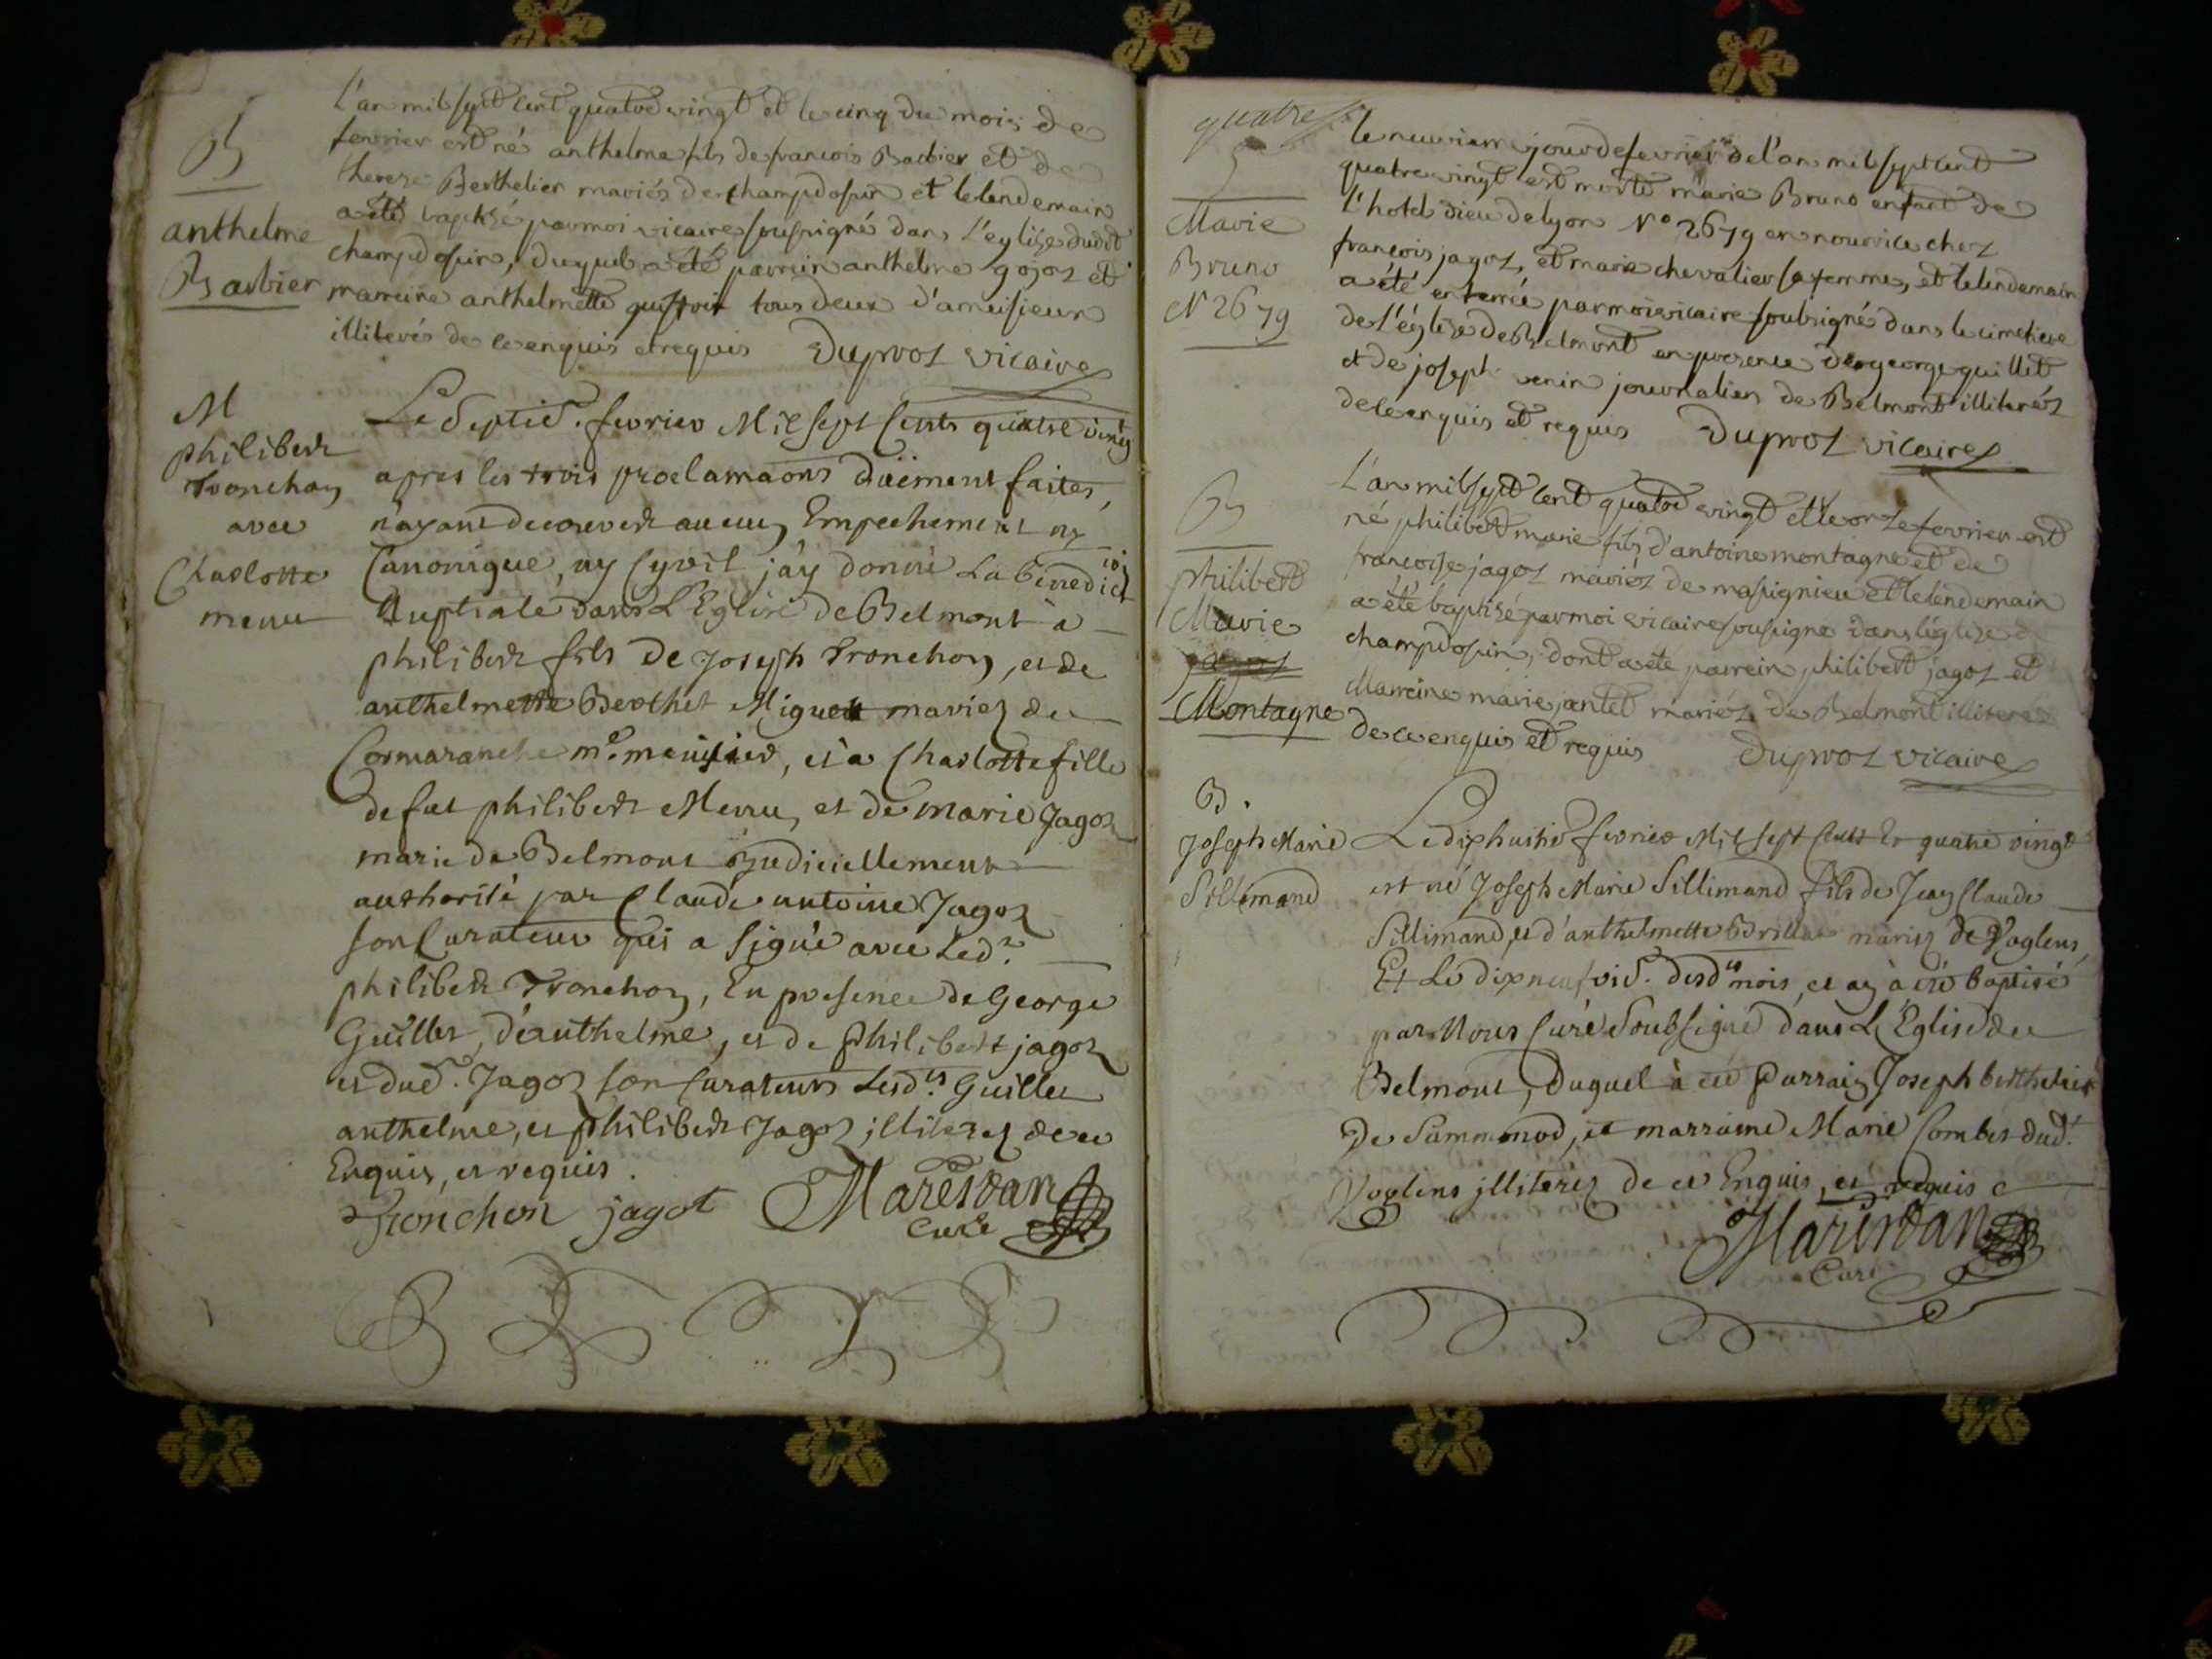 B
anthelme
Barbier
L'an mil sept cent quatre vingt et le cinq du mois de
fevrier est né anthelme fils de francois Barbier et de
therese Berthelier mariés de champdosin et le lendemain
a été baptisé par moi vicaire soussigné dans l'eglise dudit
champdosin, duquel a été parrein anthelme gojoz et
marreine anthelmette tous deux d'ameisieux
illiterés de ce enquis et requis Duproz vicaire
M
philibert
Tronchon
avec
Charlotte
menu
Le septie. fevrier Mil sept Cents quatre vingt
apres les trois proclamaons düement faites,
n'ayant decouvert aucun Empechement ny
Canonique, ny Cyvil j'ay donné La benedict ion
Nuptiale dans L'Eglise de Belmont à
philibert fils de Joseph Tronchon, et de
anthelmette Berthet Miguet mariez de
Cormaranche me. menusier, et a Charlotte fille
de feu philibert Menu, et de marie Jagoz
marie de Belmont Judiciellement
authorisé par Claude antoine Jagoz
son Curateur qui a signé avec Led.t
philibert Tronchon, En presence de George
Guillet, d'anthelme, et de philibert jagoz
et dud.t Jagoz son Curateurs Lesd.ts Guillet
anthelme, et philibert Jagoz illiterez de ce
Enquis, et requis.
Tronchon jagot Marestan
Curé
quatre
S
Marie
Bruno
N 2679
le neuvieme jour de fevrier de l'an mil sept cent
quatre vingt est morte marie Bruno enfant de
l'hotel dieu de lyon No 2679 en nourrice chez
francois jagoz, et marie chevalier sa femme, et le lendemain
a été enterrée par moi vicaire soubsigné dans le cimetiere
de l'église de Belmont en presence de george guillet
et de joseph venin journalier de Belmont illiteréz
de ce enquis et requis Duproz vicaire
B
philibert
Marie
Montagne
L'an mil sept cent quatre vingt et le onze fevrier est
né philibert marie fils d'antoine montagne et de
francoise jagoz mariéz de massignieu et le lendemain
a été baptisé par moi vicaire soussigné dans l'église de
champdosin, dont a été parrein philibert jagoz et
Marreine marie jantet mariéz de Belmont illiterés
de ce enquis et requis Duproz vicaire
B.
Joseph Marie
Sillimand
Le dix huitie fevrier Mil sept Cent Et quatre vingt
est né Joseph Marie Sillimand fils de Jean Claude
Sillimand, et d'anthelmette Brillat mariez de Voglens,
Et Le dix neufvie. desd.ts mois, et an à été baptisé
par Nous Curé Soubsigné dans L'Eglise de
Belmont, Duquel à été Parrain Joseph berthelier
De Sammonod, et marraine Marie Combet dud.t
Voglens illiterez de ce Enquis, et requis
Marestan
Curé